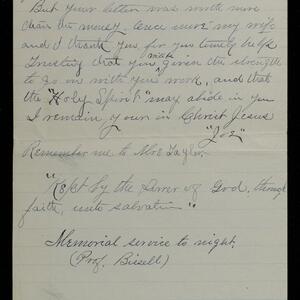 But your letter was worth more
than the money, once more my wife
and I thank you for you timely help
Trusting that you may given the strength
to go on with you work, and that
the "Holy Spirit" may abide in you
I remain your in Christ Jesus
"Joe"
Remember me to Mrs Taylor.
"Kept by the Power of God, through
faith, unto salvation"
Memorial service to night.
(Prof. Bissell)